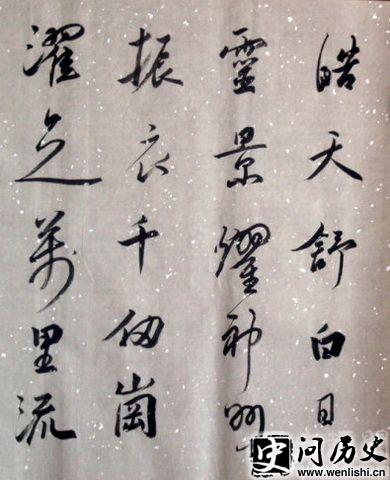 皓天舒白日
靈景耀神州
振衣千仞崗
濯足萬里流
史问历史
www.wenlishi.cn